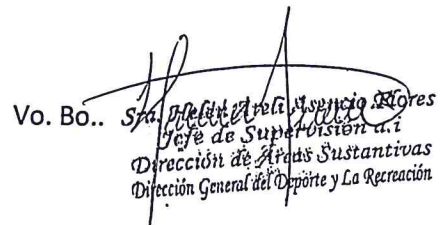 Vo. Bo.. Sra. Heidi Areli Asencio Flores
Jefe de Supervisión a.i
Dirección de Áreas Sustantivas
Dirección General del Deporte y La Recreación